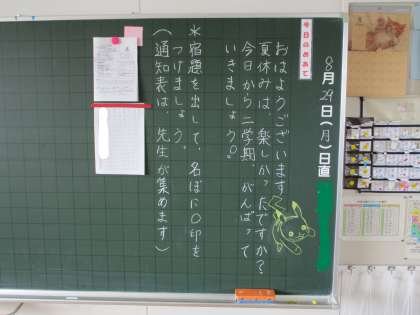 8月29日(月)日直
今日のめあて
おはようございます
夏休みは、楽しかったですか?
今日から二学期 がんばって
いきましょう。
*宿題を出して、名ぼに〇印を
つけましょう。
(通知表は、先生が集めます)